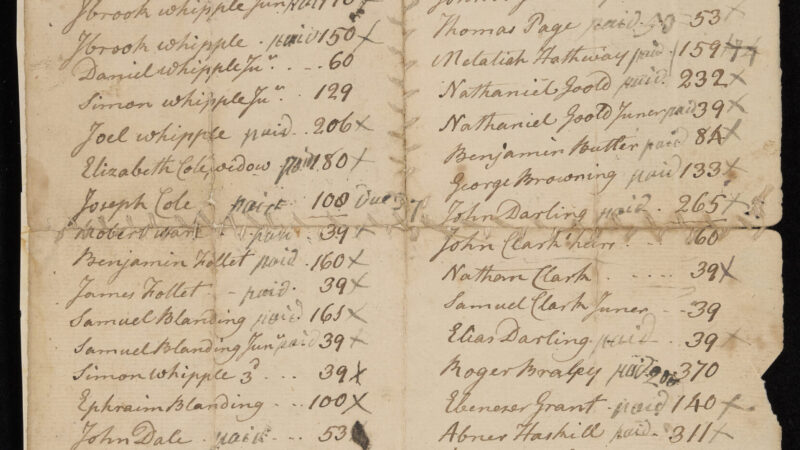 Jbrook whipple Jun paid 110 x
Jbrook whipple . paid 150 x
Daniel whipple Junr. - .. 60
Simon whipple Junr. 129
Joel whipple paid . 206 x
Elizabeth Cole, widow paid 180 x
Joseph Cole paid 108 Due 37
Robert ware paid - 39 x
Benjamin Follet paid . 160 x
James Follet - paid . 39 x
Samuel Blanding paid 165 x
Samuel Blanding Junr paid 39 x
Simon whipple 3d - - - 39 x
Ephraim Blanding - - - - 100 x
John Dale . paid - - - 53
Thomas Page paid 53 x
Melatiah Hathway paid . 159
Nathaniel Goold paid . 232 x
Nathaniel Goold Juner paid 39 x
Benjamin Butler paid 84 x
George Browning paid 133 x
John Darling paid . 265 x
John Clark . . 60
Nathan Clark - - - - - 39 x
Samuel Clark Juner - - 39
Elias Darling paid . . 39 x
Roger Braley paid 370
Ebenezer Grant . paid 140 x
Abner Haskill paid . 311 x